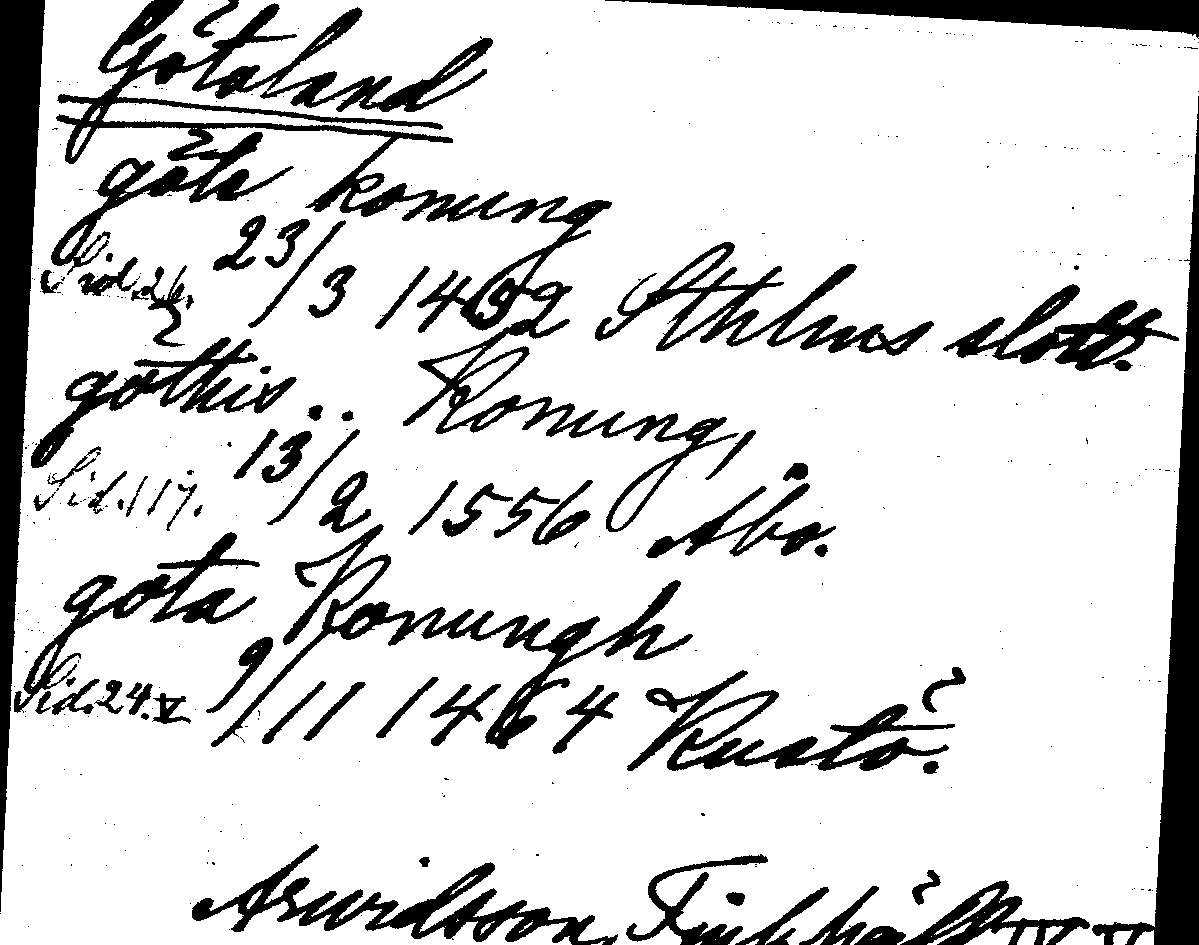 Götaland
göta konung
Sid. 26. 23/3 1432 Sthlms slott.
göthis.. Konung,
Sid. 117. 13/2 1556 Åbo.
göta Konungh
Sid. 24. V 9/11 1464 Kustö.
Arwidsson,